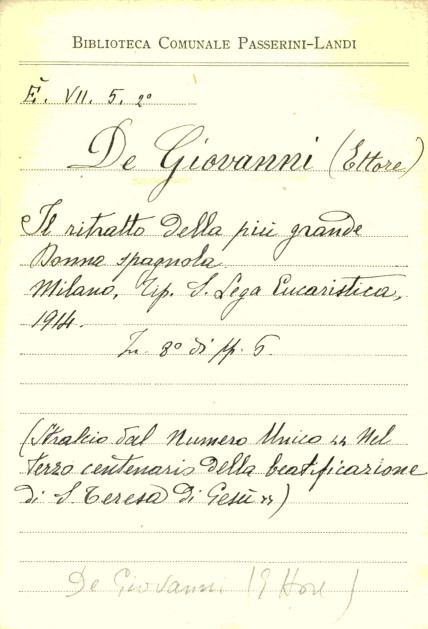 BIBLIOTECA COMUNALE PASSERINI-LANDI
E. VII. 5. 2°
De Giovanni (Ettore)
Il ritratto della più grande
Donna spagnola
Milano, Tip. S. Lega Eucaristica,
1914.
In. 8° di pp. 6.
(Stralcio dal Numero Unico « Nel
terzo centenario della beatificazione
di S. Teresa di Gesù »)
De Giovanni (Ettore)